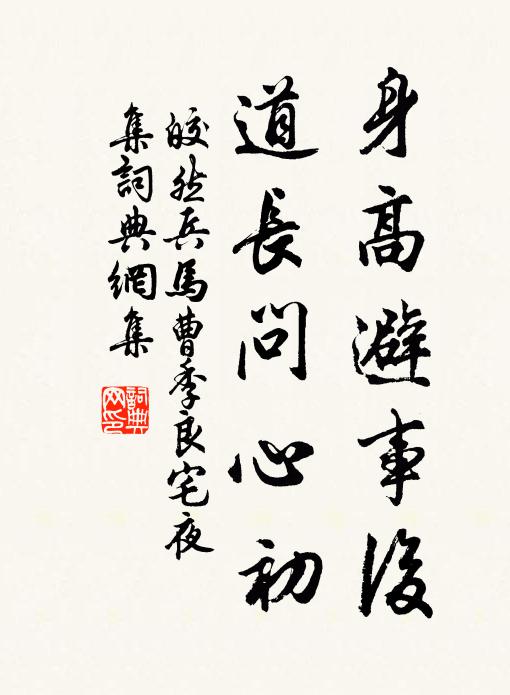 身高避事後
道長問心初
皎然兵馬曹季良宅夜
集詞典網集
詞典
网印